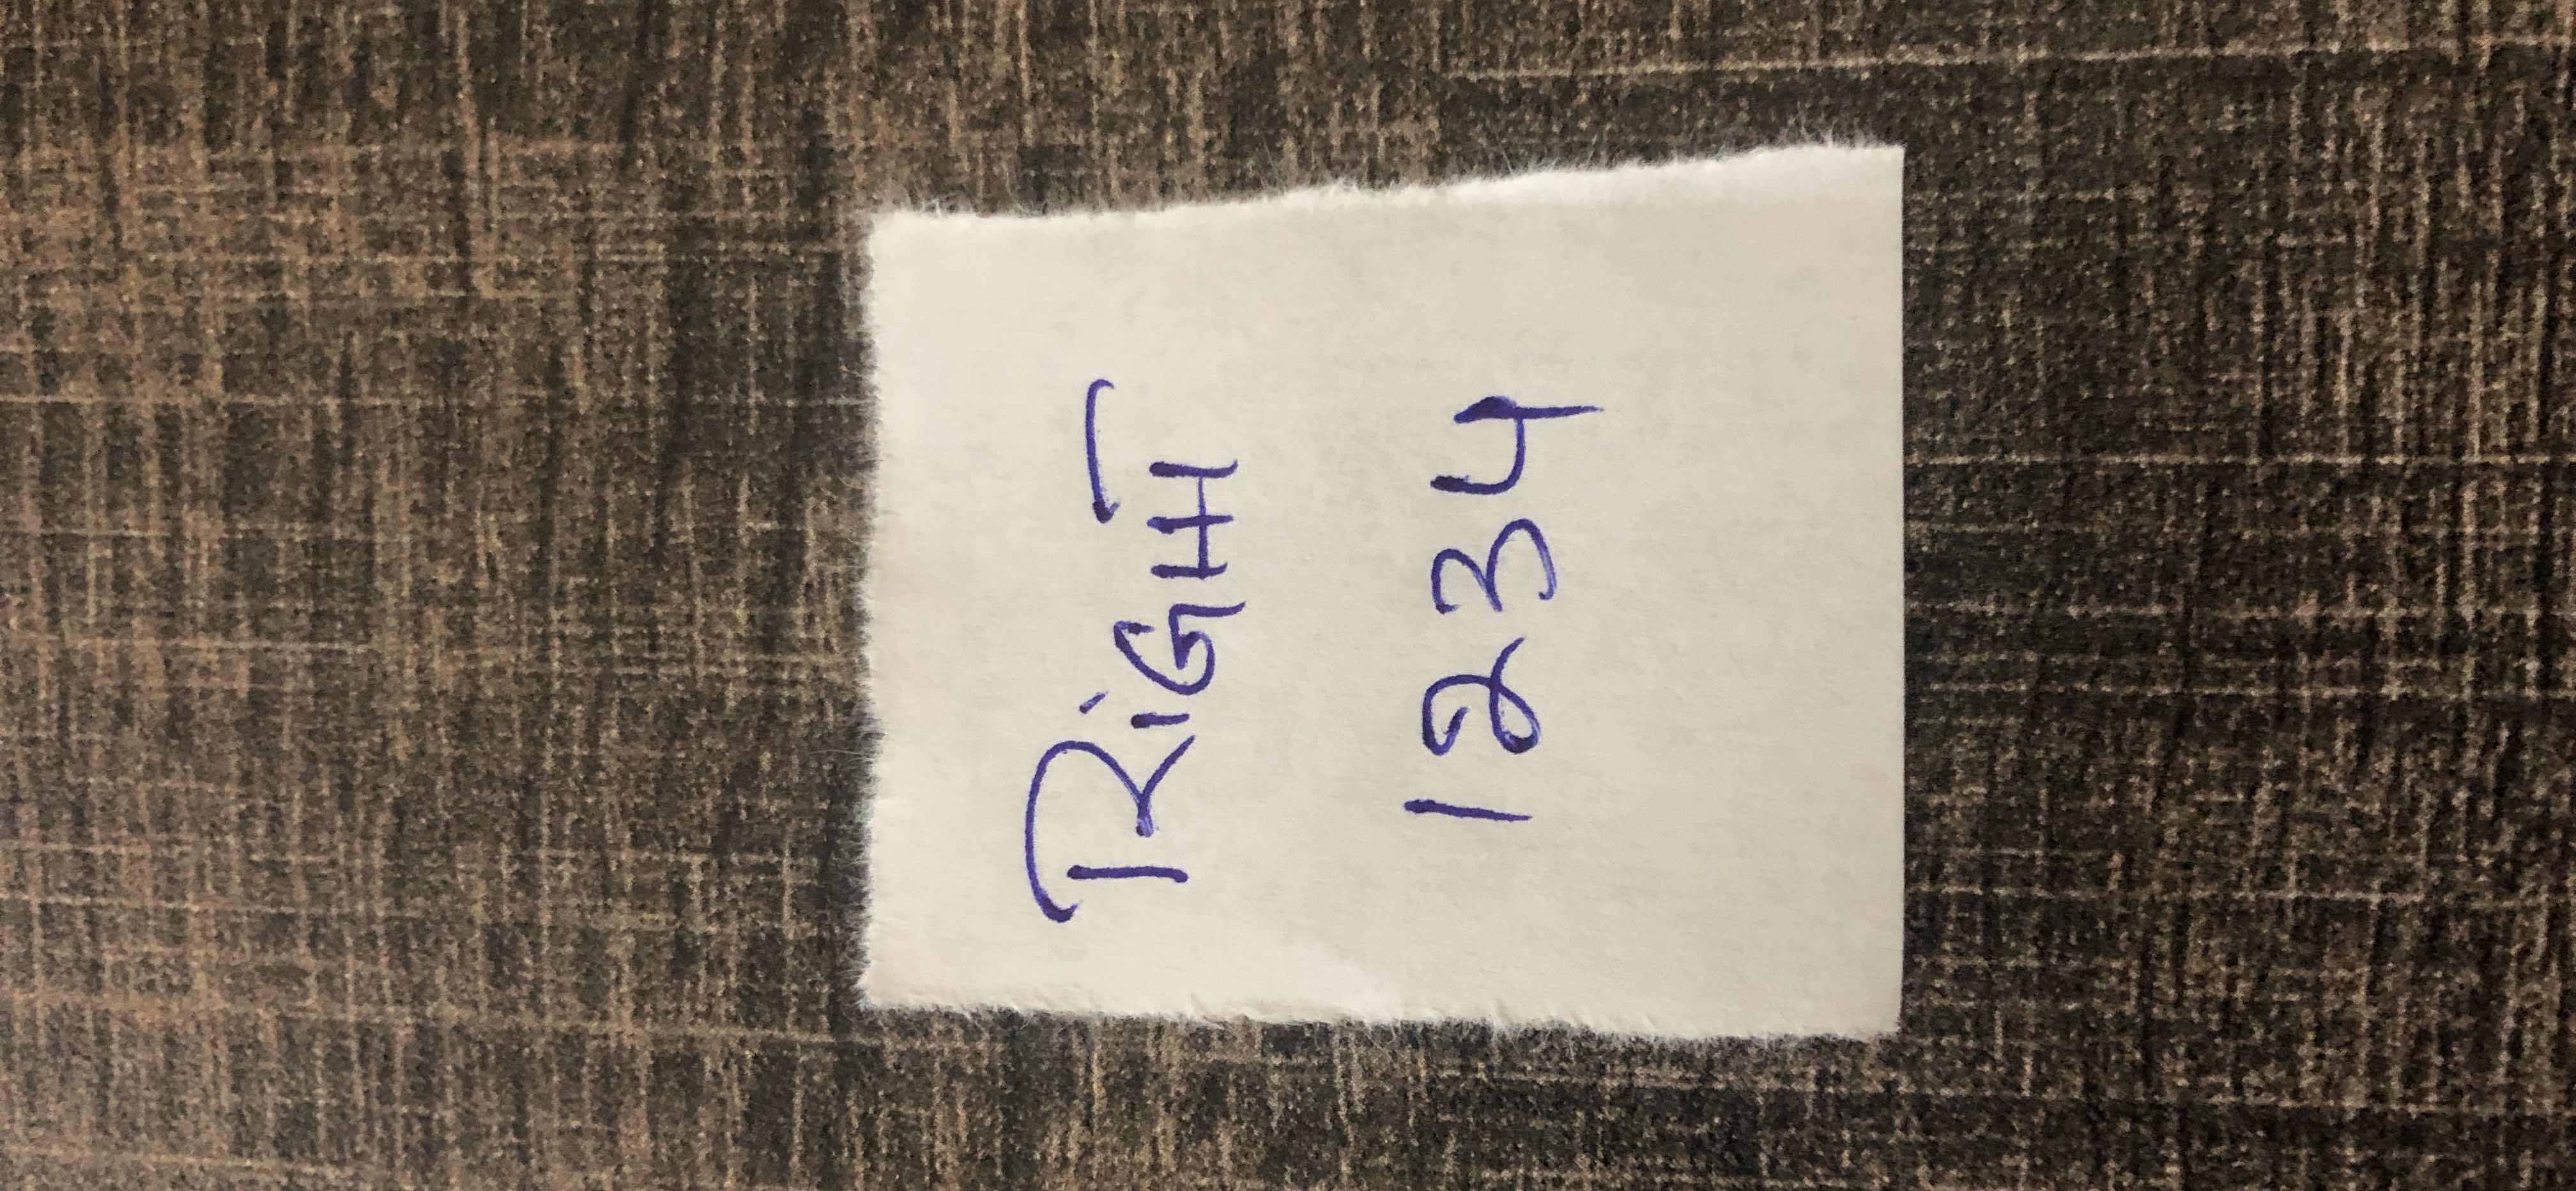 RiGHT
1234